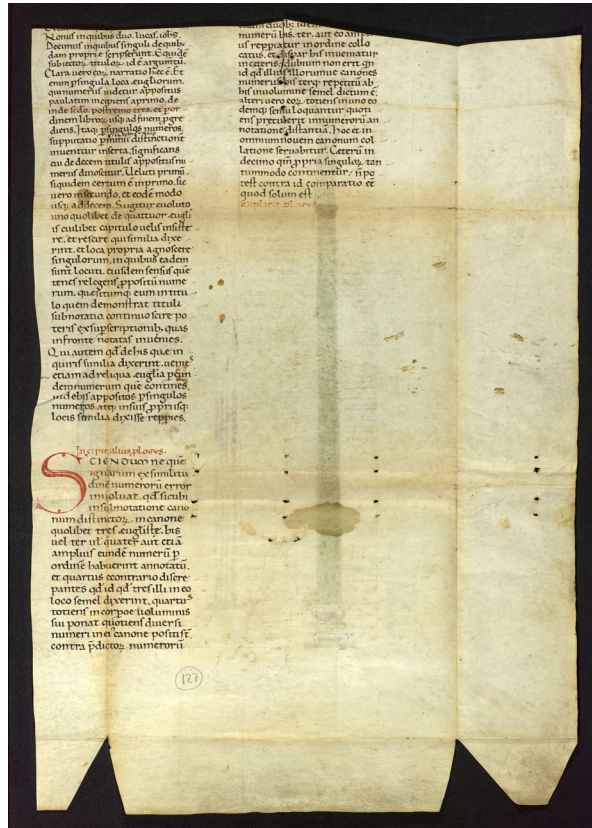 Nonus in quibus duo. lucas. iohs.
Decimus in quibus singuli de quibus
dam proprie scripserunt. Eoȝ idē
subiectoȝ titulor, id ē argumtū.
Clara vero eoȝ narratio hęc ē. Et
enim ꝑ singula loca euglioruͫ.
qui numerus uidetur appositus
paulatim incipiens a primo. de
inde sedo. postremo tres. et ꝑ or
dinem libroȝ. usq; ad finem ꝓgre
diens. Itaq; ꝑ singulos numeros
supputatio ꝑ minii distinctionē
inuenitur inserta. significans
cui de decem titulis appositus nu
merus dinoscitur. Ueluti primū
siquidem certum ē in primo. sic
vero in secundo. et eodē modo
usq; ad decem. Si igitur euoluto
uno quolibet de quattuor eugli
is cuilibet capitulo uelis insiste
re. et rescire qui similia dixe
rint. et loca propria agnoscere
singulorum. in quibus eadem
sunt locuti. eiusdem sensus que
tenes relegens ꝓpositū nume
rum. quesitumq; eum in titu
lo quem demonstrat tituli
subnotatio. continuo scire po
teris ex supscriptionib; quas
in fronte notatas inuenies.
Qui autem qđ de his que in
quiris similia dixerint. uenieˢ
etiam ad reliqua euglia ꝑ eun
dem numerum quē contines.
uidebis appositos ꝑ singulos
numeros atq; in suis ꝓpriisq;
locis similia dixisse reppies.
Incipit alius ꝓlogus.
SCIENDUM ne quē
ignarum ex similitu
dinē numerorū error
inuoluat. qđ sicubi
in subnotatione cano
num distinctoȝ. in canone
quolibet tres euglistę. bis
vel ter ul quater aut etiā
amplius eundē numerū ꝑ
ordinē habuerint annotatū.
et quartus e contrario discre
pantes qđ id qđ tres illi in eo
loco semel dixerint. quartuˢ
totiens in corpoe uoluminis
sui ponat quotiens diuersi
numeri in ei canone positi st̄.
contra p̄dictoȝ numerorū
numerū bis. ter. aut eo ampli
us reppiatur in ordine collo
catus. et dispar his inueniatur
in ceteris. dubium non erit qn̄
id qđ illius illorumue canones
numerus bis terq; repetitū ab
his in uolumine semel dictum ē.
alteri vero eoȝ totiens in uno eo
demq; sensu loquantur quoti
ens p̄terierit in numerū an
notatione distantia. Hoc et in
omnium nouem canonum col
latione seruabitur. Ceterū in
decimo qm̄ ꝓpria singuloȝ tan
tummodo continentur. n̄ po
test contra id comparatio eē
quod solum est.
Explicit ꝓlogus
127